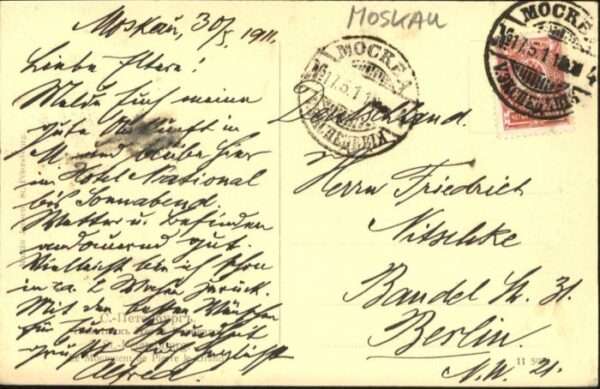 MOSKAU
Moskau, 30/5 1911.
Liebe Eltern!
Melde Euch meine
gute Ankunft in
M. und bleibe hier
im Hotel National
bis Sonnabend.
Wetter u. Befinden
andauernd gut.
Vielleicht bin ich schon
in ca. 2 Wochen zurück.
Mit den besten Wünschen
grüßt herzlichst
Alfred
С.-Петербургъ
St.
Monument de Pierre le
МОСКВА
17.5.11
МОСКВА
17.5.11
Deutschland.
Herrn Friedrich
Nitschke
Bandel St. 31.
Berlin.
N.W. 21.
11